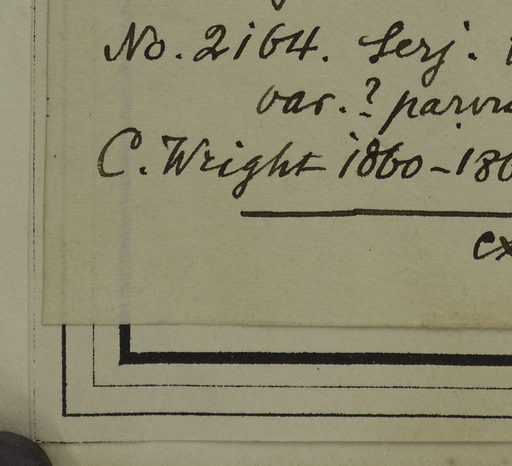 No. 2164. Serj.
var. ?
C. Wright 1860-186